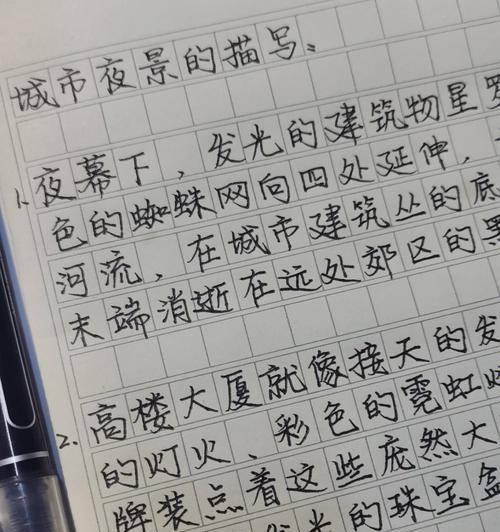 城市夜景的描写。
1. 夜幕下，发光的建筑物星罗
色的蜘蛛网向四处延伸，
河流，在城市建筑丛的底
末端消逝在远处郊区的黑
2. 高楼大厦就像接天的发
的灯火、彩色的霓虹灯
牌装点着这些庞然大
光的珠宝盒